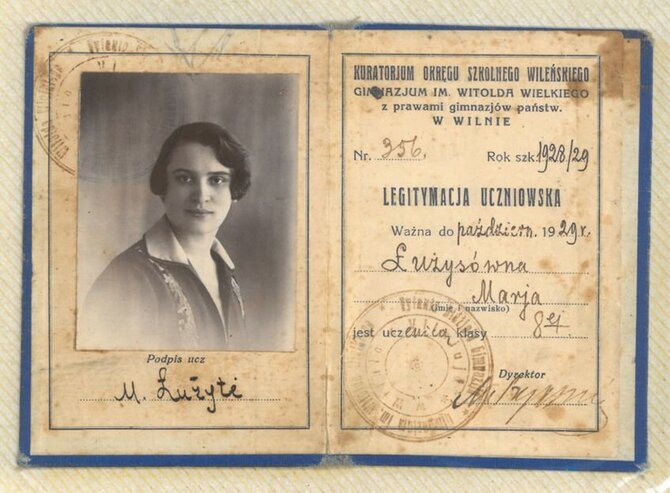 Podpis ucz
M. Łużytė
KURATORJUM OKRĘGU SZKOLNEGO WILEŃSKIEGO
GIMNAZJUM IM. WITOLDA WIELKIEGO
z prawami gimnazjów państw.
W WILNIE
Nr. 356. Rok szk. 1928/29
LEGITYMACJA UCZNIOWSKA
Ważna do październ. 1929 r.
Łużysówna
Marja
(imię i nazwisko)
jest uczenicą klasy 8ej
Dyrektor